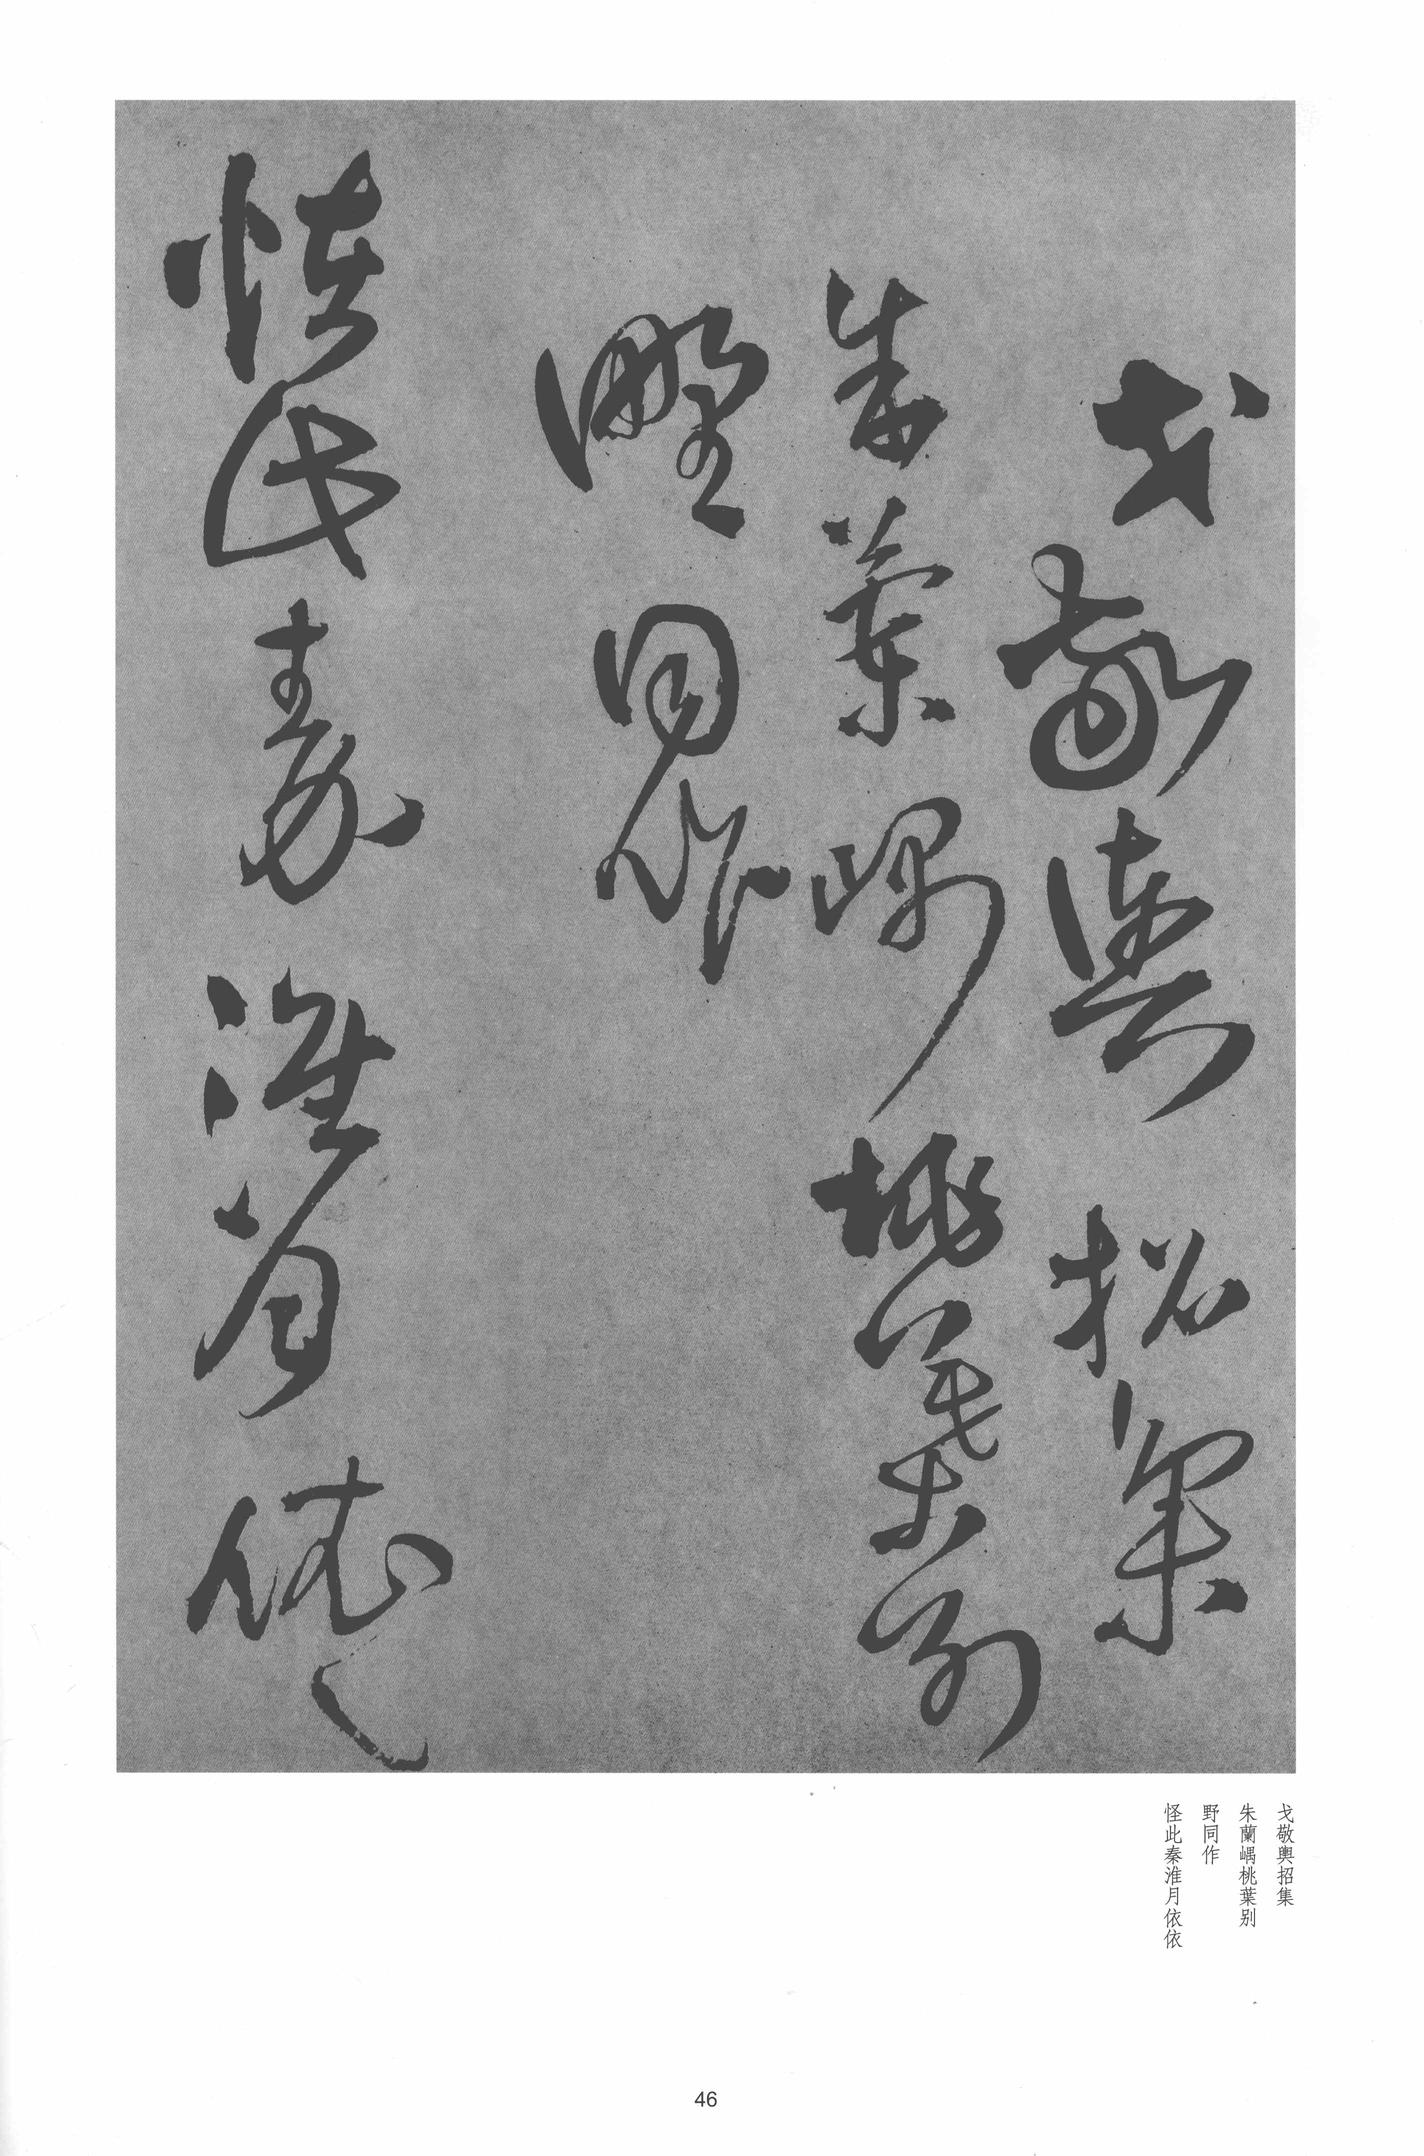 戈敬輿招集
朱蘭嵎桃葉别
野同作
怪此秦淮月依依
戈敬輿招集
朱蘭嵎桃葉别
野同作
怪此秦淮月依依
46